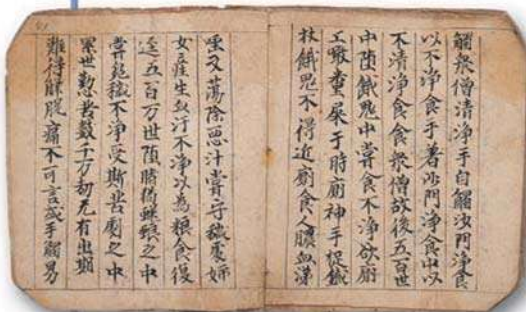 觸衆僧清淨手自觸沙門淨食
以不淨食手著沙門淨食中以
不清淨食食衆僧故後五百世
中墮餓鬼中甞食不淨欲廁
噉屎于時廁神手捉鐵
杖餓鬼不得近廁食人膿血涕
唾又蕩除惡汁甞守穢處婦
女產生血汙不淨以為粮食復
逕五百万世墮猪蜣蜋之中
甞穢不淨受斯苦劇之中
累世懃苦數千万劫无有出期
難得解脫痛不可言或手觸男